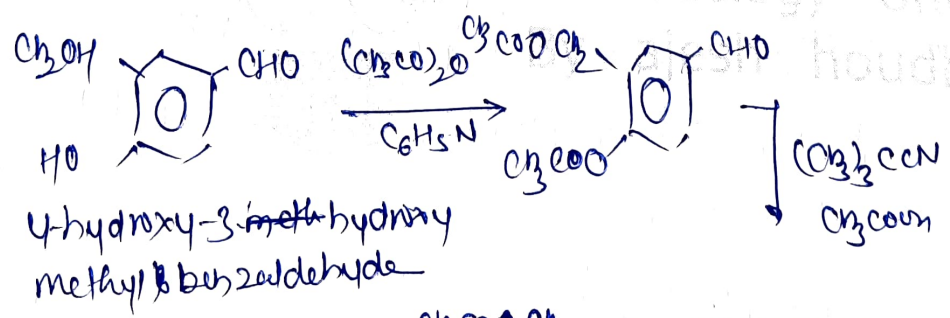 CH2OH CHO (CH3CO)2O CH3COOCH2 CHO
HO C6H5N CH3COO (CH3)3CCN
CH3COOH
4-hydroxy-3-hydroxy
methyl benzaldehyde